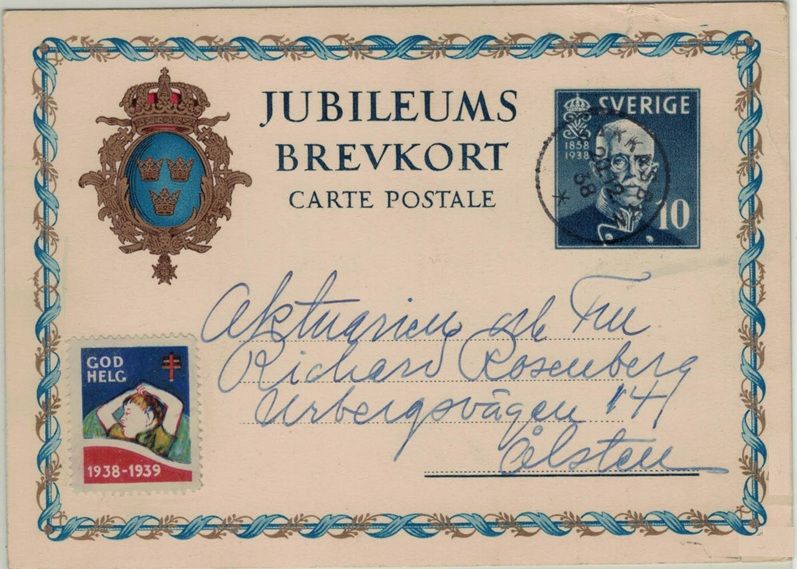 JUBILEUMS
BREVKORT
CARTE POSTALE
SVERIGE
1858
1938
10
22 12
38
Aktuarien och Fru
Richard Rosenberg
Urbergsvägen 14
Ålsten
GOD
HELG
1938-1939